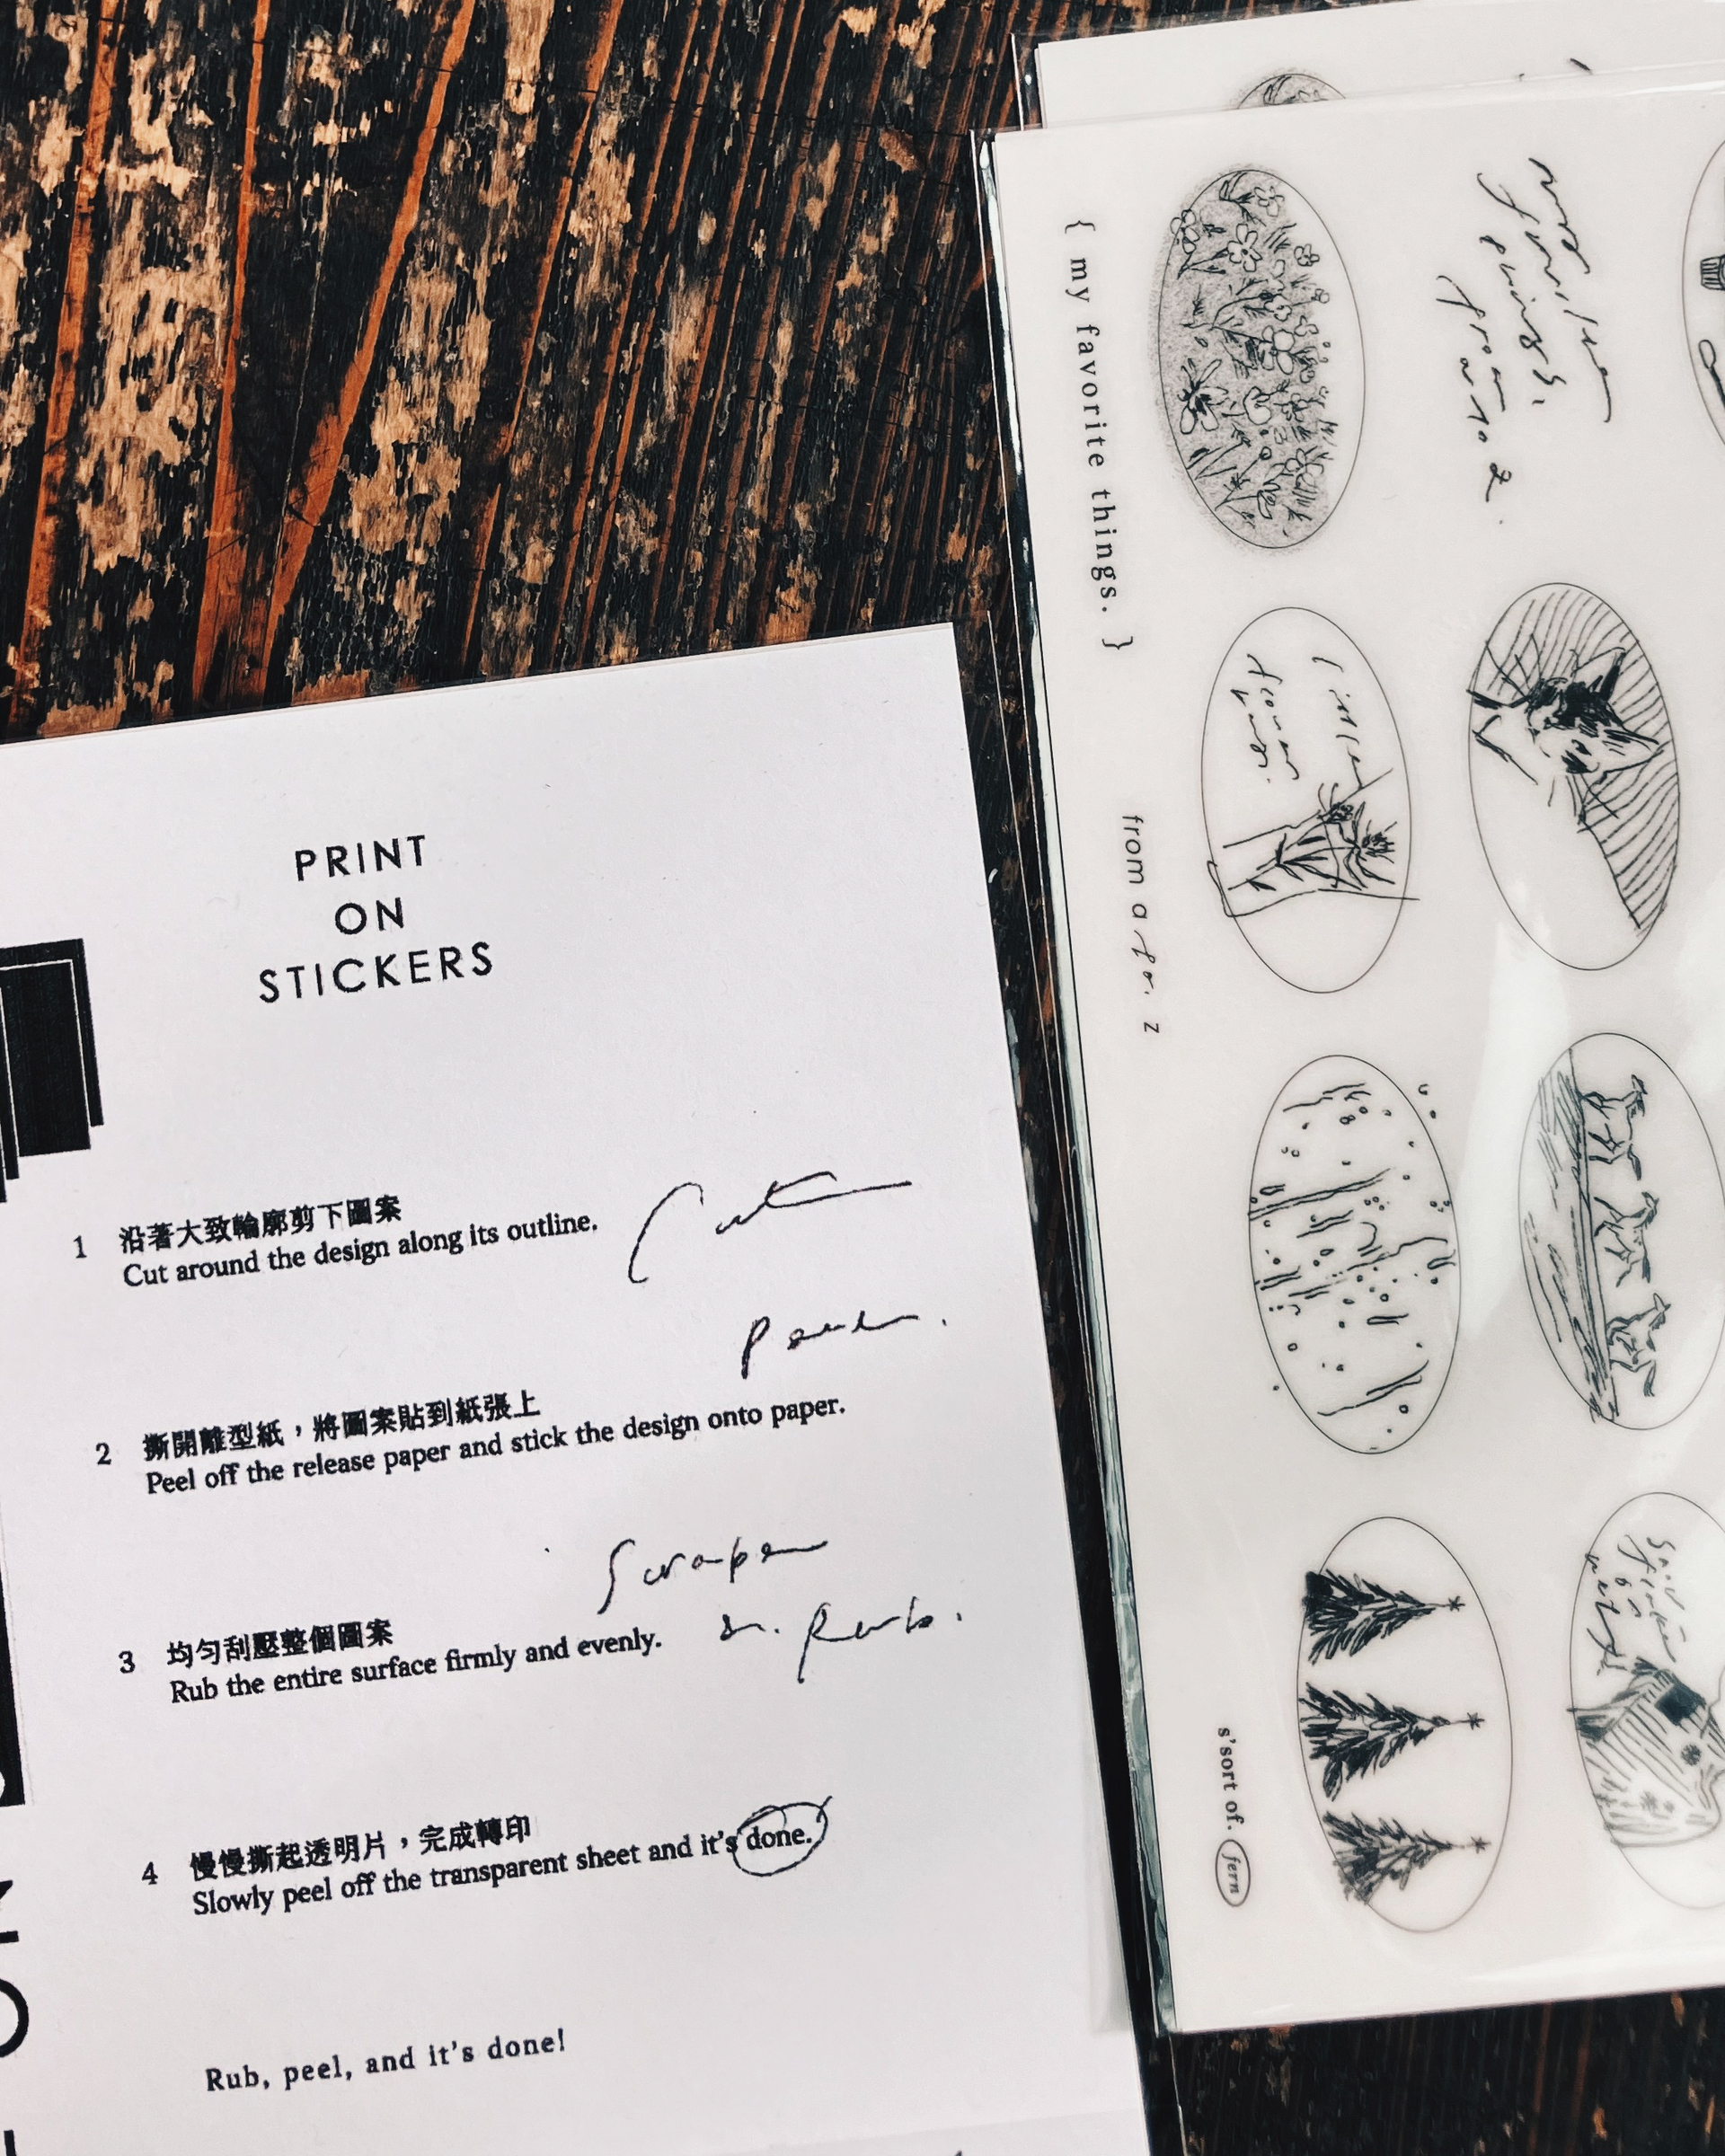 PRINT
ON
STICKERS
1 沿著大致輪廓剪下圖案
Cut around the design along its outline.
Cut
2 撕開離型紙，將圖案貼到紙張上
Peel off the release paper and stick the design onto paper.
3 均勻刮壓整個圖案
Rub the entire surface firmly and evenly.
Rub.
4 慢慢撕起透明片，完成轉印
Slowly peel off the transparent sheet and it's done.
Rub, peel, and it's done!
{ my favorite things. }
from a
z
s'sort of. fern